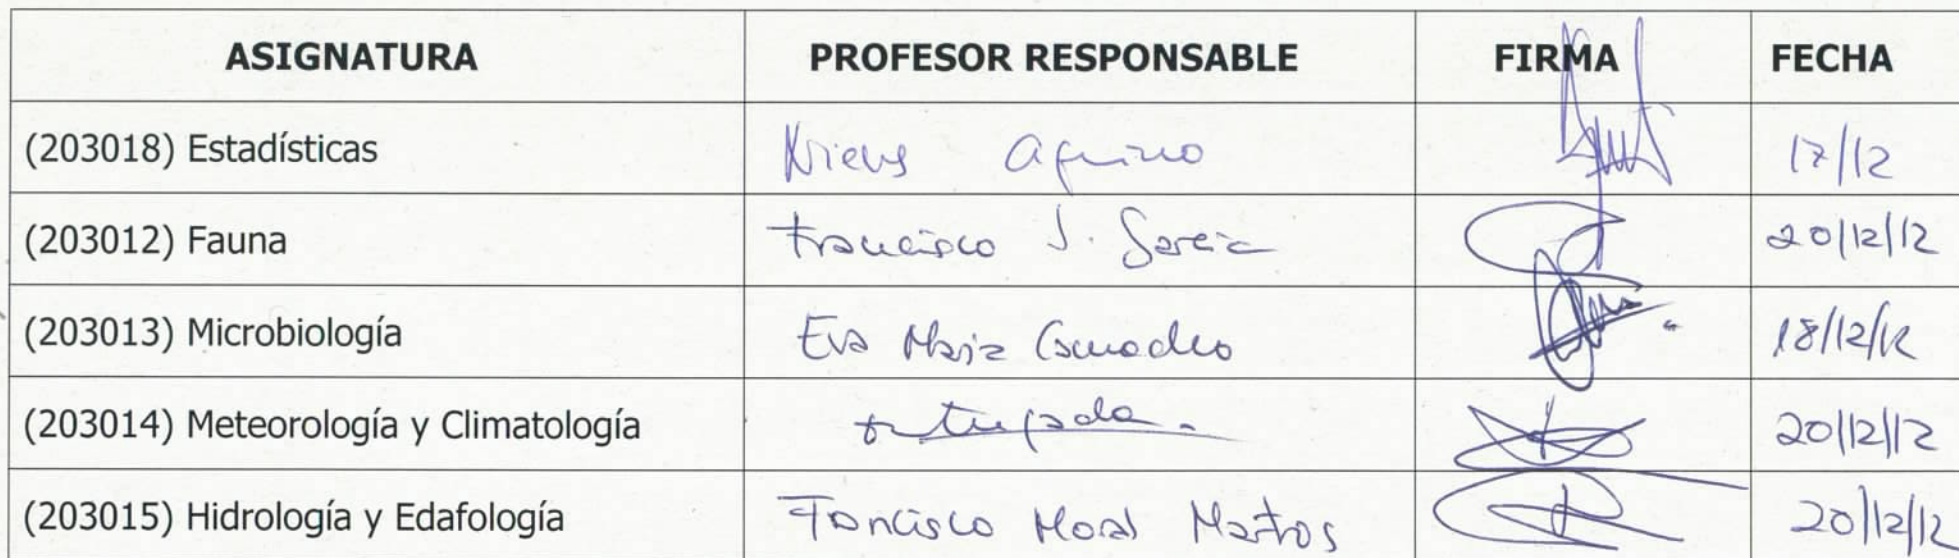 ASIGNATURA PROFESOR RESPONSABLE FIRMA FECHA
(203018) Estadísticas Nieves Aquino 17/12
(203012) Fauna Francisco J. García 20/12/12
(203013) Microbiología Eva María 18/12/12
(203014) Meteorología y Climatología 20/12/12
(203015) Hidrología y Edafología Francisco Moral Martos 20/12/12